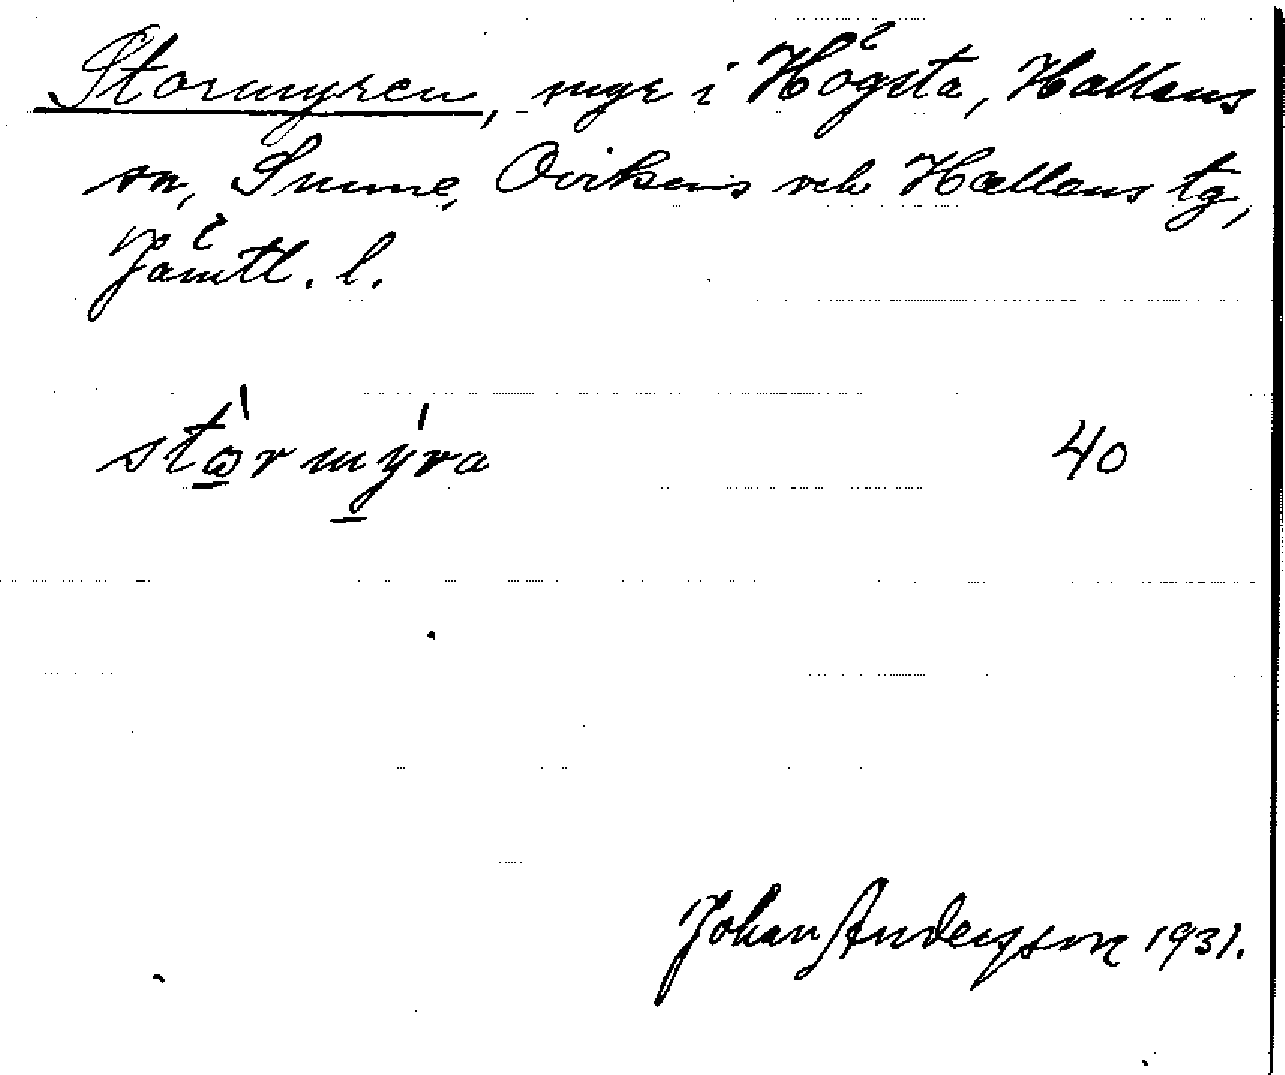 Stormyren, myr i Högsta, Hallens
sn, Sunne, Ovikens och Hallens tg,
Jämtl. l.
stormyra 40
Johan Andersson 1931.